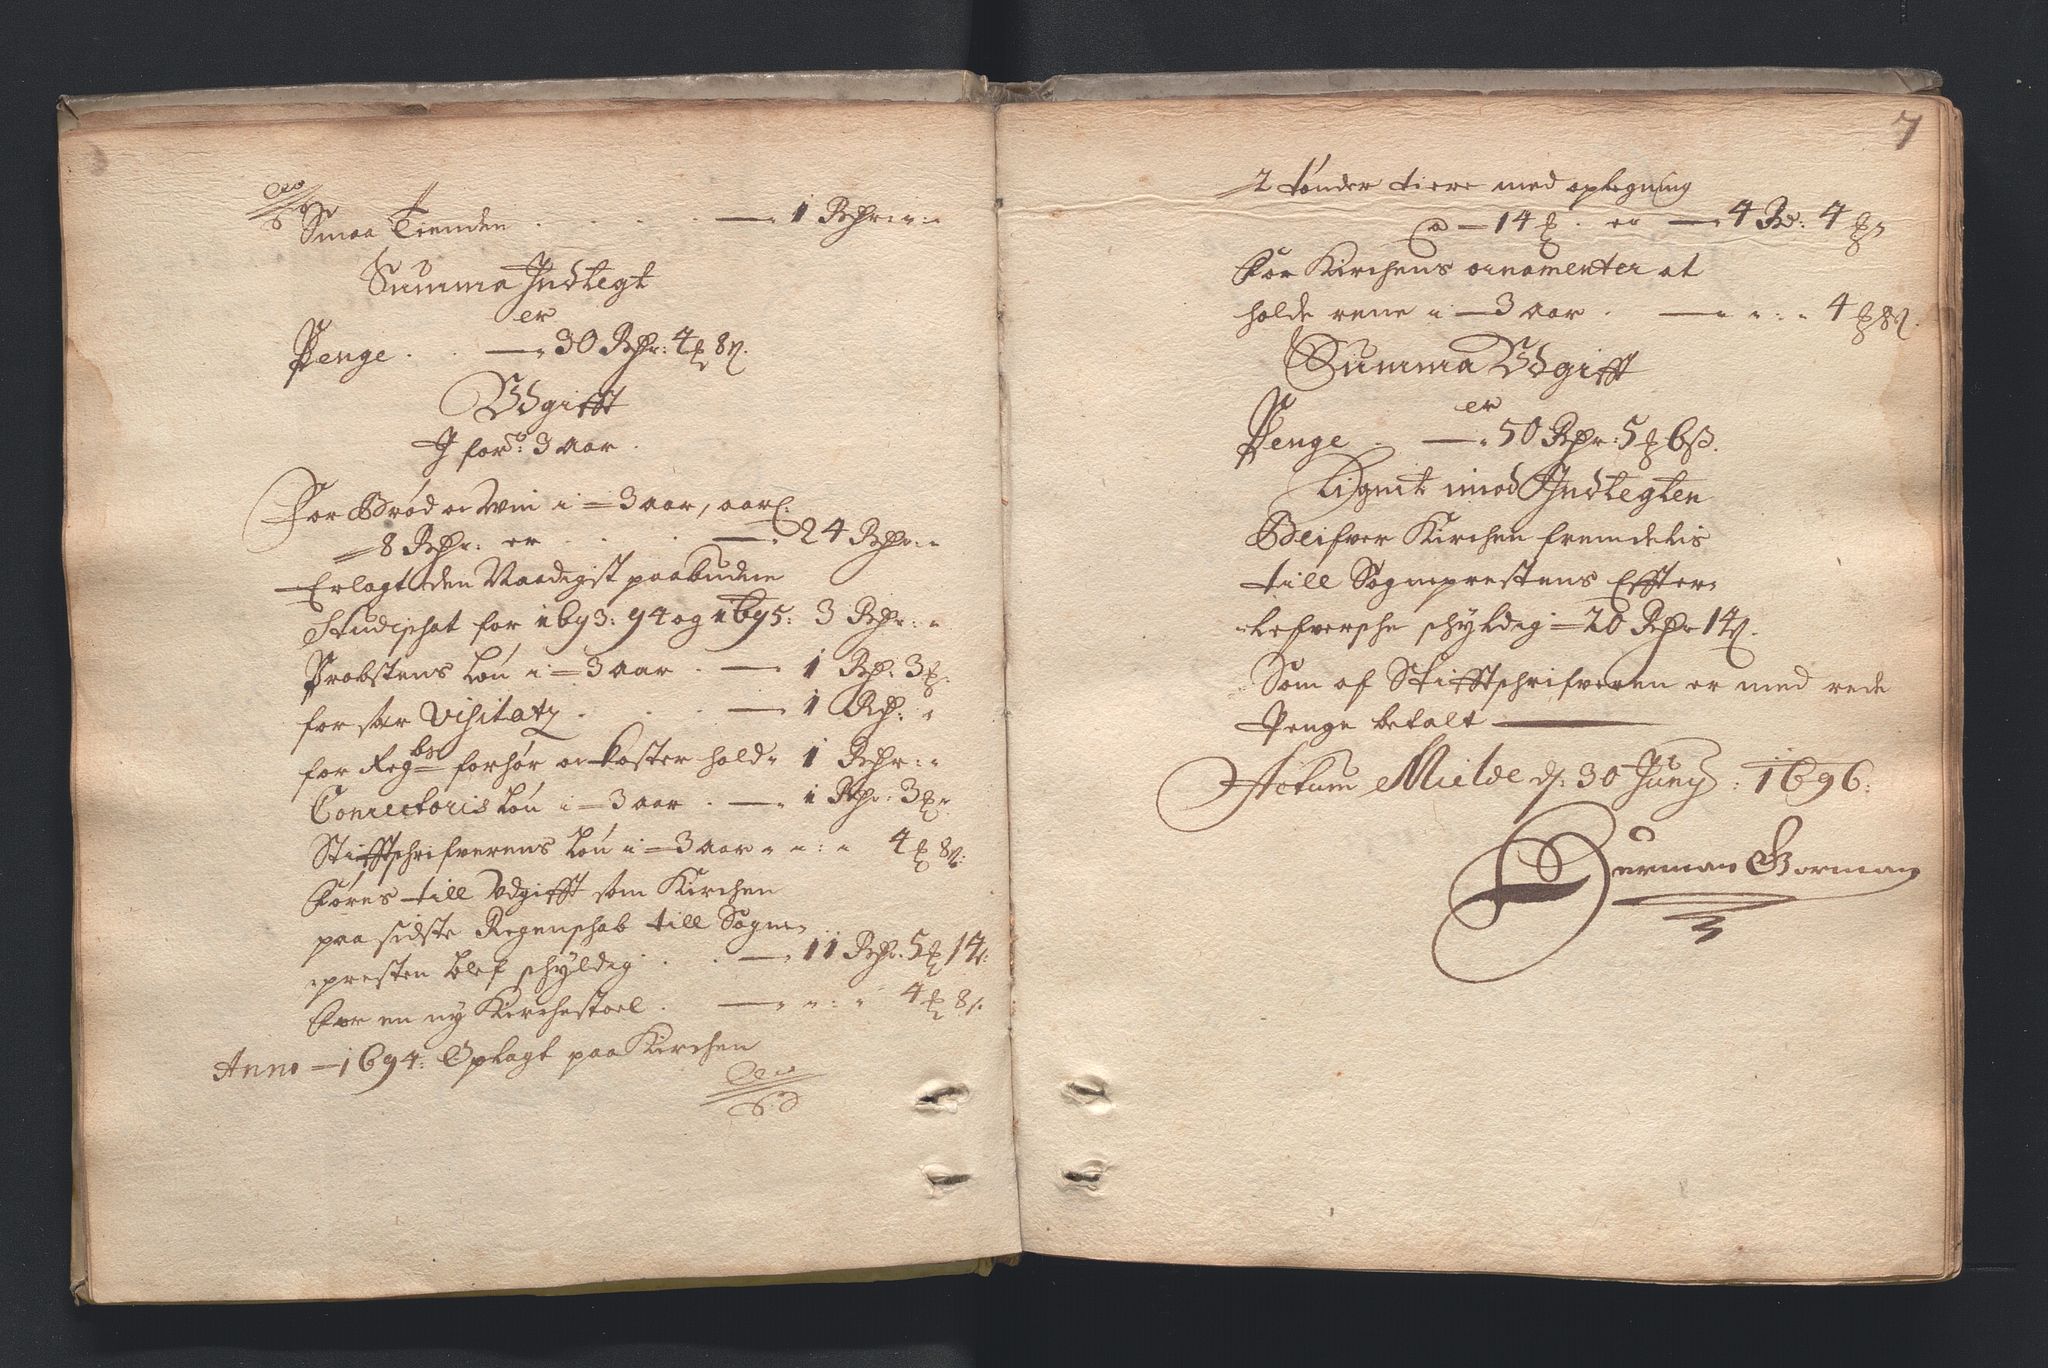 Smaa Tienden . . . . — 1 Rdr: "
Summa Indtegt
er
Penge . . — 30 Rdr: 4 ₰ 8 s.
Udgifft
I for: 3 aar .
For Brød oc Vin i — 3 aar, aarl:
— 8 Rdr: er . . . — 24 Rdr: "
Erlagt den Naadigst paabudne
Studischat for 1693: 94 og 1695: 3 Rdr: "
Probstens Løn i — 3 aar . — 1 Rdr: 3 ₰.
for sær Visitatz . . . — 1 Rdr: "
for Regbs forhør oc koster hold " 1 Rdr: "
Conrectoris Løn i — 3 aar . — 1 Rdr: 3 ₰
Stifftschrifverens Løn i — 3 aar " " : " 4 ₰ 8 s:
Føres till Udgifft som Kirchen
paa sidste Regenschab till Sogne-
presten blef schyldig . . — 11 Rdr. 5 ₰ 14 s:
For en ny Kirchestoel . — " " : " 4 ₰ 8 s.
Anno — 1694: Oplagt paa Kirchen
7
2 tønder tiere med oplegning
a — 14 ₰ . er — 4 Rd: 4 ₰
For Kirchens ornamenter at
holde rene i — 3 aar . — " " : " 4 ₰ 8 s.
Summa Udgifft
er
Penge . — 50 Rdr: 5 ₰ 6 s.
Lignet imod Indtegten
Blifver Kirchen fremdelis
till Sogneprestens Effter-
lefversche schyldig — 20 Rdr 14 s.
Som af Stifftschrifveren er med rede
Penge betalt —
Actum Melde d: 30 Junij : 1696:
Herman Gorman